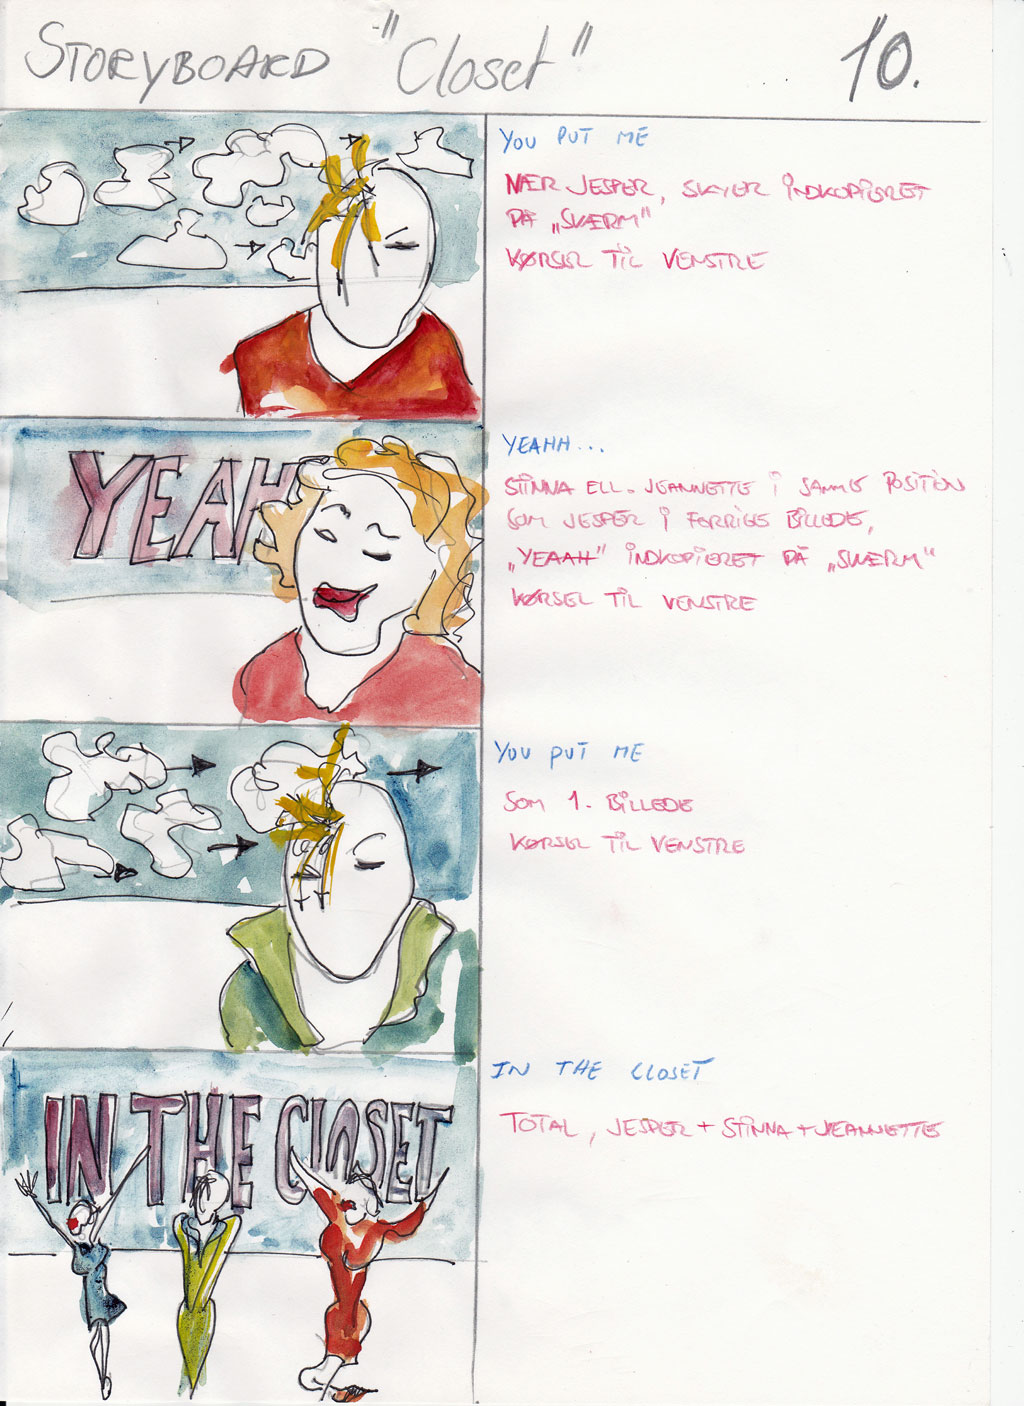 STORYBOARD "Closet" 10.
YOU PUT ME
NÆR JESPER, SKYER INDKOPIERET
PÅ „SKÆRM"
KØRSEL TIL VENSTRE
YEAH
YEAHH...
STINNA ELL. JEANNETTE I SAMME POSITION
SOM JESPER I FORRIGE BILLEDE,
„YEAAH" INDKOPIERET PÅ „SKÆRM"
KØRSEL TIL VENSTRE
YOU PUT ME
SOM 1. BILLEDE
KØRSEL TIL VENSTRE
IN THE CLOSET
IN THE CLOSET
TOTAL, JESPER + STINNA + JEANNETTE